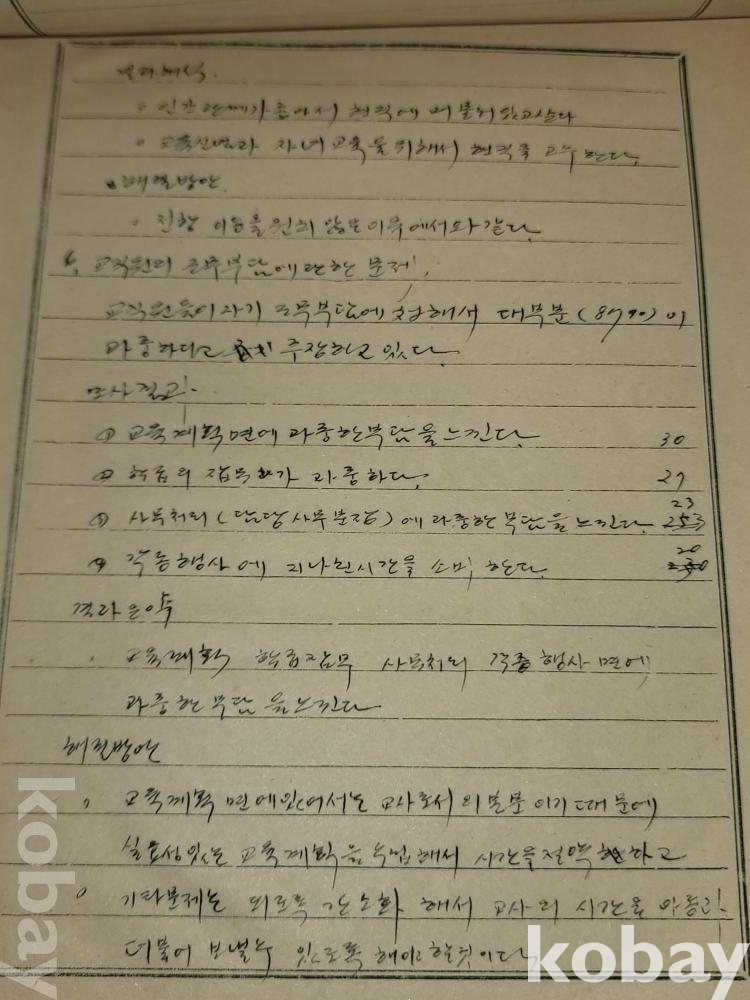 결과해석.
◦ 인간관계가 좋아서 현직에 머물러 있고 싶다
◦ 교육신념과 자녀교육을 위해서 현직을 고수한다.
해결방안.
◦ 전항 이동을 원치 않은 이유에서와 같다.
6. 교직원의 근무부담에 관한 문제.
교직원들이 자기 근무부담에 대해서 대부분(87%)이
과중하다고 주장하고 있다.
조사결과.
① 교육계획면에 과중한 부담을 느낀다. 30
② 학급의 잡무가 과중하다. 27
③ 사무처리(담당사무분장)에 과중한 부담을 느낀다. 23
④ 각종행사에 지나친 시간을 소비한다. 20
결과요약
. 교육계획 학급잡무 사무처리 각종행사면에
과중한 부담을 느낀다
해결방안
◦ 교육계획면에 있어서는 교사로서의 본분이기 때문에
실효성있는 교육계획을 수립해서 시간을 절약하고
◦ 기타문제는 되도록 간소화해서 교사의 시간을 아동과
더불어 보낼 수 있도록 해야 할 것이다.
kobay
kobay